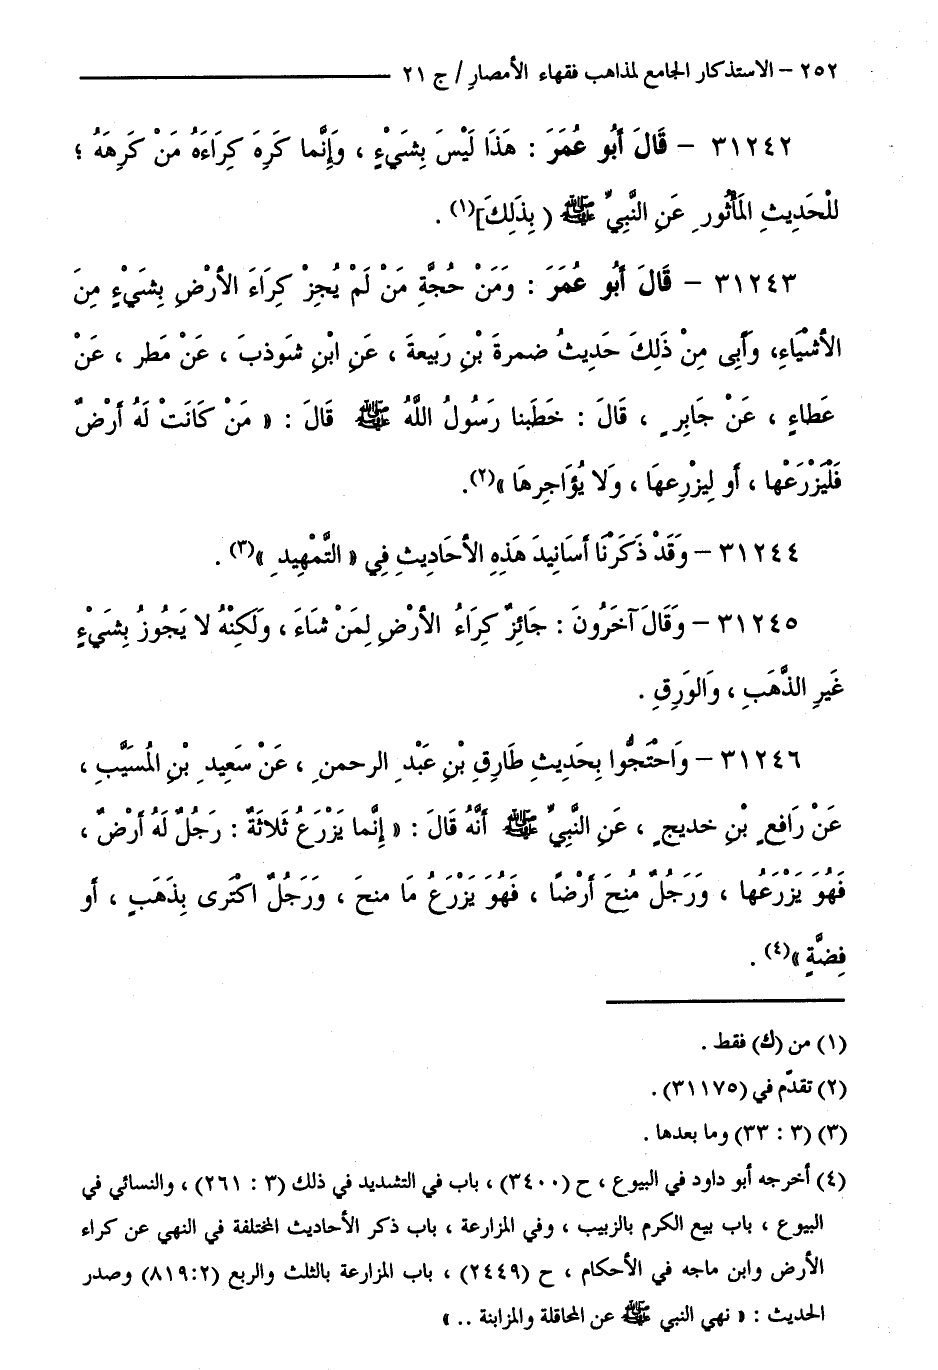 ٢٥٢ – الاستذكار الجامع لمذاهب فقهاء الأمصار / ج ٢١
٣١٢٤٢ – قَالَ أَبُو عُمَرَ : هَذَا لَيْسَ بِشَيْءٍ ، وَإِنَّما كَرِهَ كِرَاءَهُ مَنْ كَرِهَهُ ؛
للْحَدِيثِ المَأْثُورِ عَنِ النَّبِيِّ ﷺ ( بِذَلِكَ](١) .
٣١٢٤٣ – قَالَ أَبُو عُمَرَ : وَمَنْ حُجَّةِ مَنْ لَمْ يُجِزْ كِرَاءَ الأرْضِ بِشَيْءٍ مِنَ
الأشْيَاءِ، وَأَبِى مِنْ ذَلِكَ حَدِيثُ ضمرةَ بْنِ رَبِيعةَ ، عَنِ ابْنِ شَوذبَ ، عَنْ مَطر ، عَنْ
عَطاءٍ ، عَنْ جَابِرٍ ، قَالَ : خَطَبنا رَسُولُ اللَّهُ ﷺ قَالَ : « مَنْ كَانَتْ لَهُ أرْضٌ
فَلْيَزْرَعْها ، أو لِيزْرِعهَا ، وَلا يُؤَاجِرهَا »(٢).
٣١٢٤٤ – وَقَدْ ذَكَرْنَا أسَانِيدَ هَذِهِ الأحَادِيثِ فِي « التَّمْهِيدِ »(٣) .
٣١٢٤٥ – وَقَالَ آخَرُونَ : جَائِزٌ كِرَاءُ الأرْضِ لِمَنْ شَاءَ ، وَلَكِنْهُ لا يَجُوزُ بِشَيْءٍ
غَيرِ الذَّهَبِ ، وَالوَرِقِ .
٣١٢٤٦ – وَاحْتَجُّوا بِحَدِيثِ طَارِقِ بْنِ عَبْدِ الرحمنِ ، عَنْ سَعِيدِ بْنِ المُسَيَّبِ ،
عَنْ رَافعِ بْنِ خديجٍ ، عَنِ النَّبِيِّ ﷺ أَنَّهُ قَالَ : « إِنَّما يَزْرَعُ ثَلاثَةٌ : رَجُلٌ لَهُ أرْضٌ ،
فَهُوَ يَزْرَعُها ، وَرَجُلٌ مُنِحَ أَرْضًا ، فَهُوَ يَزْرَعُ مَا منحَ ، وَرَجُلٌ اكْتَرى بِذَهَبٍ ، أو
فِضَّةٍ »(٤) .
(١) من (ك) فقط .
(٢) تقدّم في (٣١١٧٥) .
(٣) (٣ : ٣٣) وما بعدها .
(٤) أخرجه أبو داود في البيوع ، ح (٣٤٠٠) ، باب في التشديد في ذلك (٣ : ٢٦١) ، والنسائي في
البيوع ، باب بيع الكرم بالزبيب ، وفي المزارعة ، باب ذكر الأحاديث المختلفة في النهي عن كراء
الأرض وابن ماجه في الأحكام ، ح (٢٤٤٩) ، باب المزارعة بالثلث والربع (٢:٨١٩) وصدر
الحديث : « نهي النبي ﷺ عن المحاقلة والمزابنة .. »